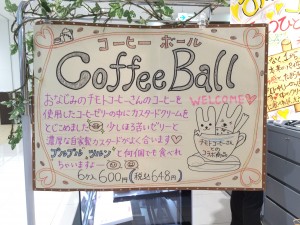 コーヒー ボール
Coffee Ball
WELCOME
おなじみのチモトコーヒーさんのコーヒーを
使用したコーヒーゼリーの中にカスタードクリームを
とじこめました 少しほろ苦いゼリーと
濃厚な自家製カスタードがよく合います
プルプル ツルン と何個でも食べれ
ちゃいますねー
6ケ入 600円(税込648円)
チモトコーヒーさん
との
コラボ商品